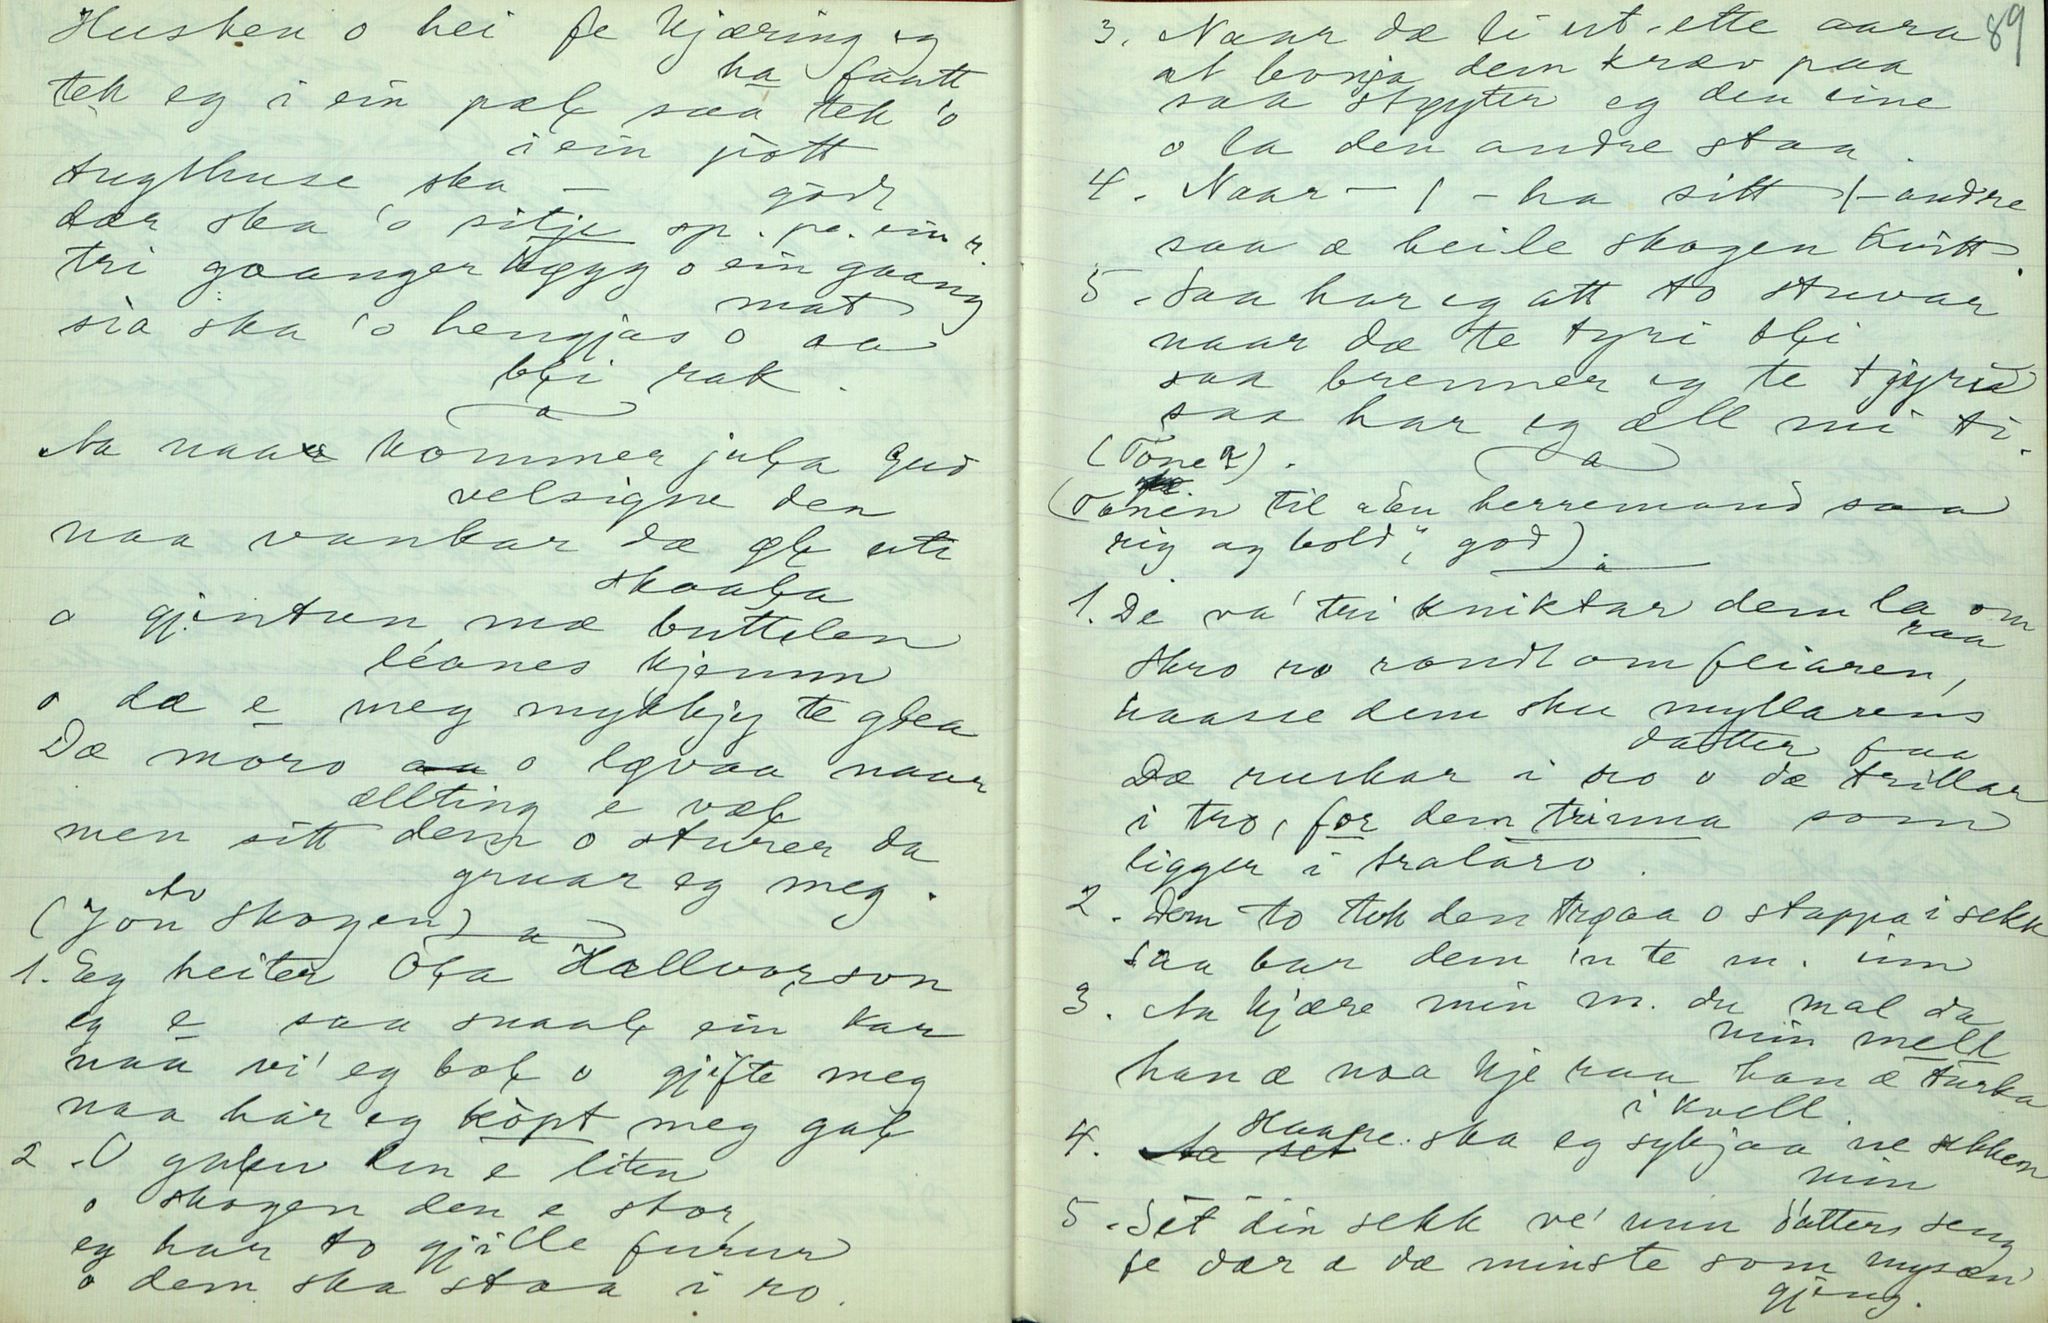 Husken o hei fe kjæring eg
ha faatt
tek eg i ein pæl saa tek 'o
i ein pott
tugthuse ska —
godt
dær ska 'o sitje op. pe. ein
tri gaanger høgg o ein gaang
mat
sia ska 'o hengjas o aa
bli rak.
Aa naar kommer jula Gud
velsigne den
naa vankar dæ øl uti
skaala
o gjentun mæ buttelen
léanes kjemm
o dæ e meg mykkjy te glea
Dæ moro o løvaa naar
ællting e væl
men sitt dem o sturer da
gruar eg meg.
(Jon to Skogen)
1. Eg heiter Ola Hællvorson
eg e saa snaal ein kar
naa vi' eg bol o gjifte meg
naa har eg kòpt meg gal
2. O galen den e liten
o skogen den e stor,
eg har to gjille furur
o dem ska staa i ro.
89
3. Naar dæ li ut-ette aara
at bonja dem kræv paa
saa styyter eg den eine
o la den andre staa.
4. Naar — / - ha sitt /- andre
saa æ heile skogen kvitt.
5. Saa har eg att to stuvar
naar dæ te tyri bli
saa brenner eg te tjyria
saa har eg æll mi ti.
(Tone 2).
(Tonen til "En herremand saa
rig og bold", god).
1. De va' tri kniktar dem la om
raa
skro ro rondt om feiaren,
haasse dem sku myllarens
datter faa
Dæ ruskar i ro o dæ trillar
i tro, for dem trinna som
ligger i tralaro.
2. Dem to tok den trøaa o stappa i sekk
saa bar dem 'n te m. inn
3. Aa kjære min m. du mal da
min mell
han æ naa kje raa han æ turka
i kvell.
4. Haare. ska eg sykjaa ne sekken
min
5. Set din sekk ve' min datters seng
fe dær æ dæ minste som mysæn
gjeng.